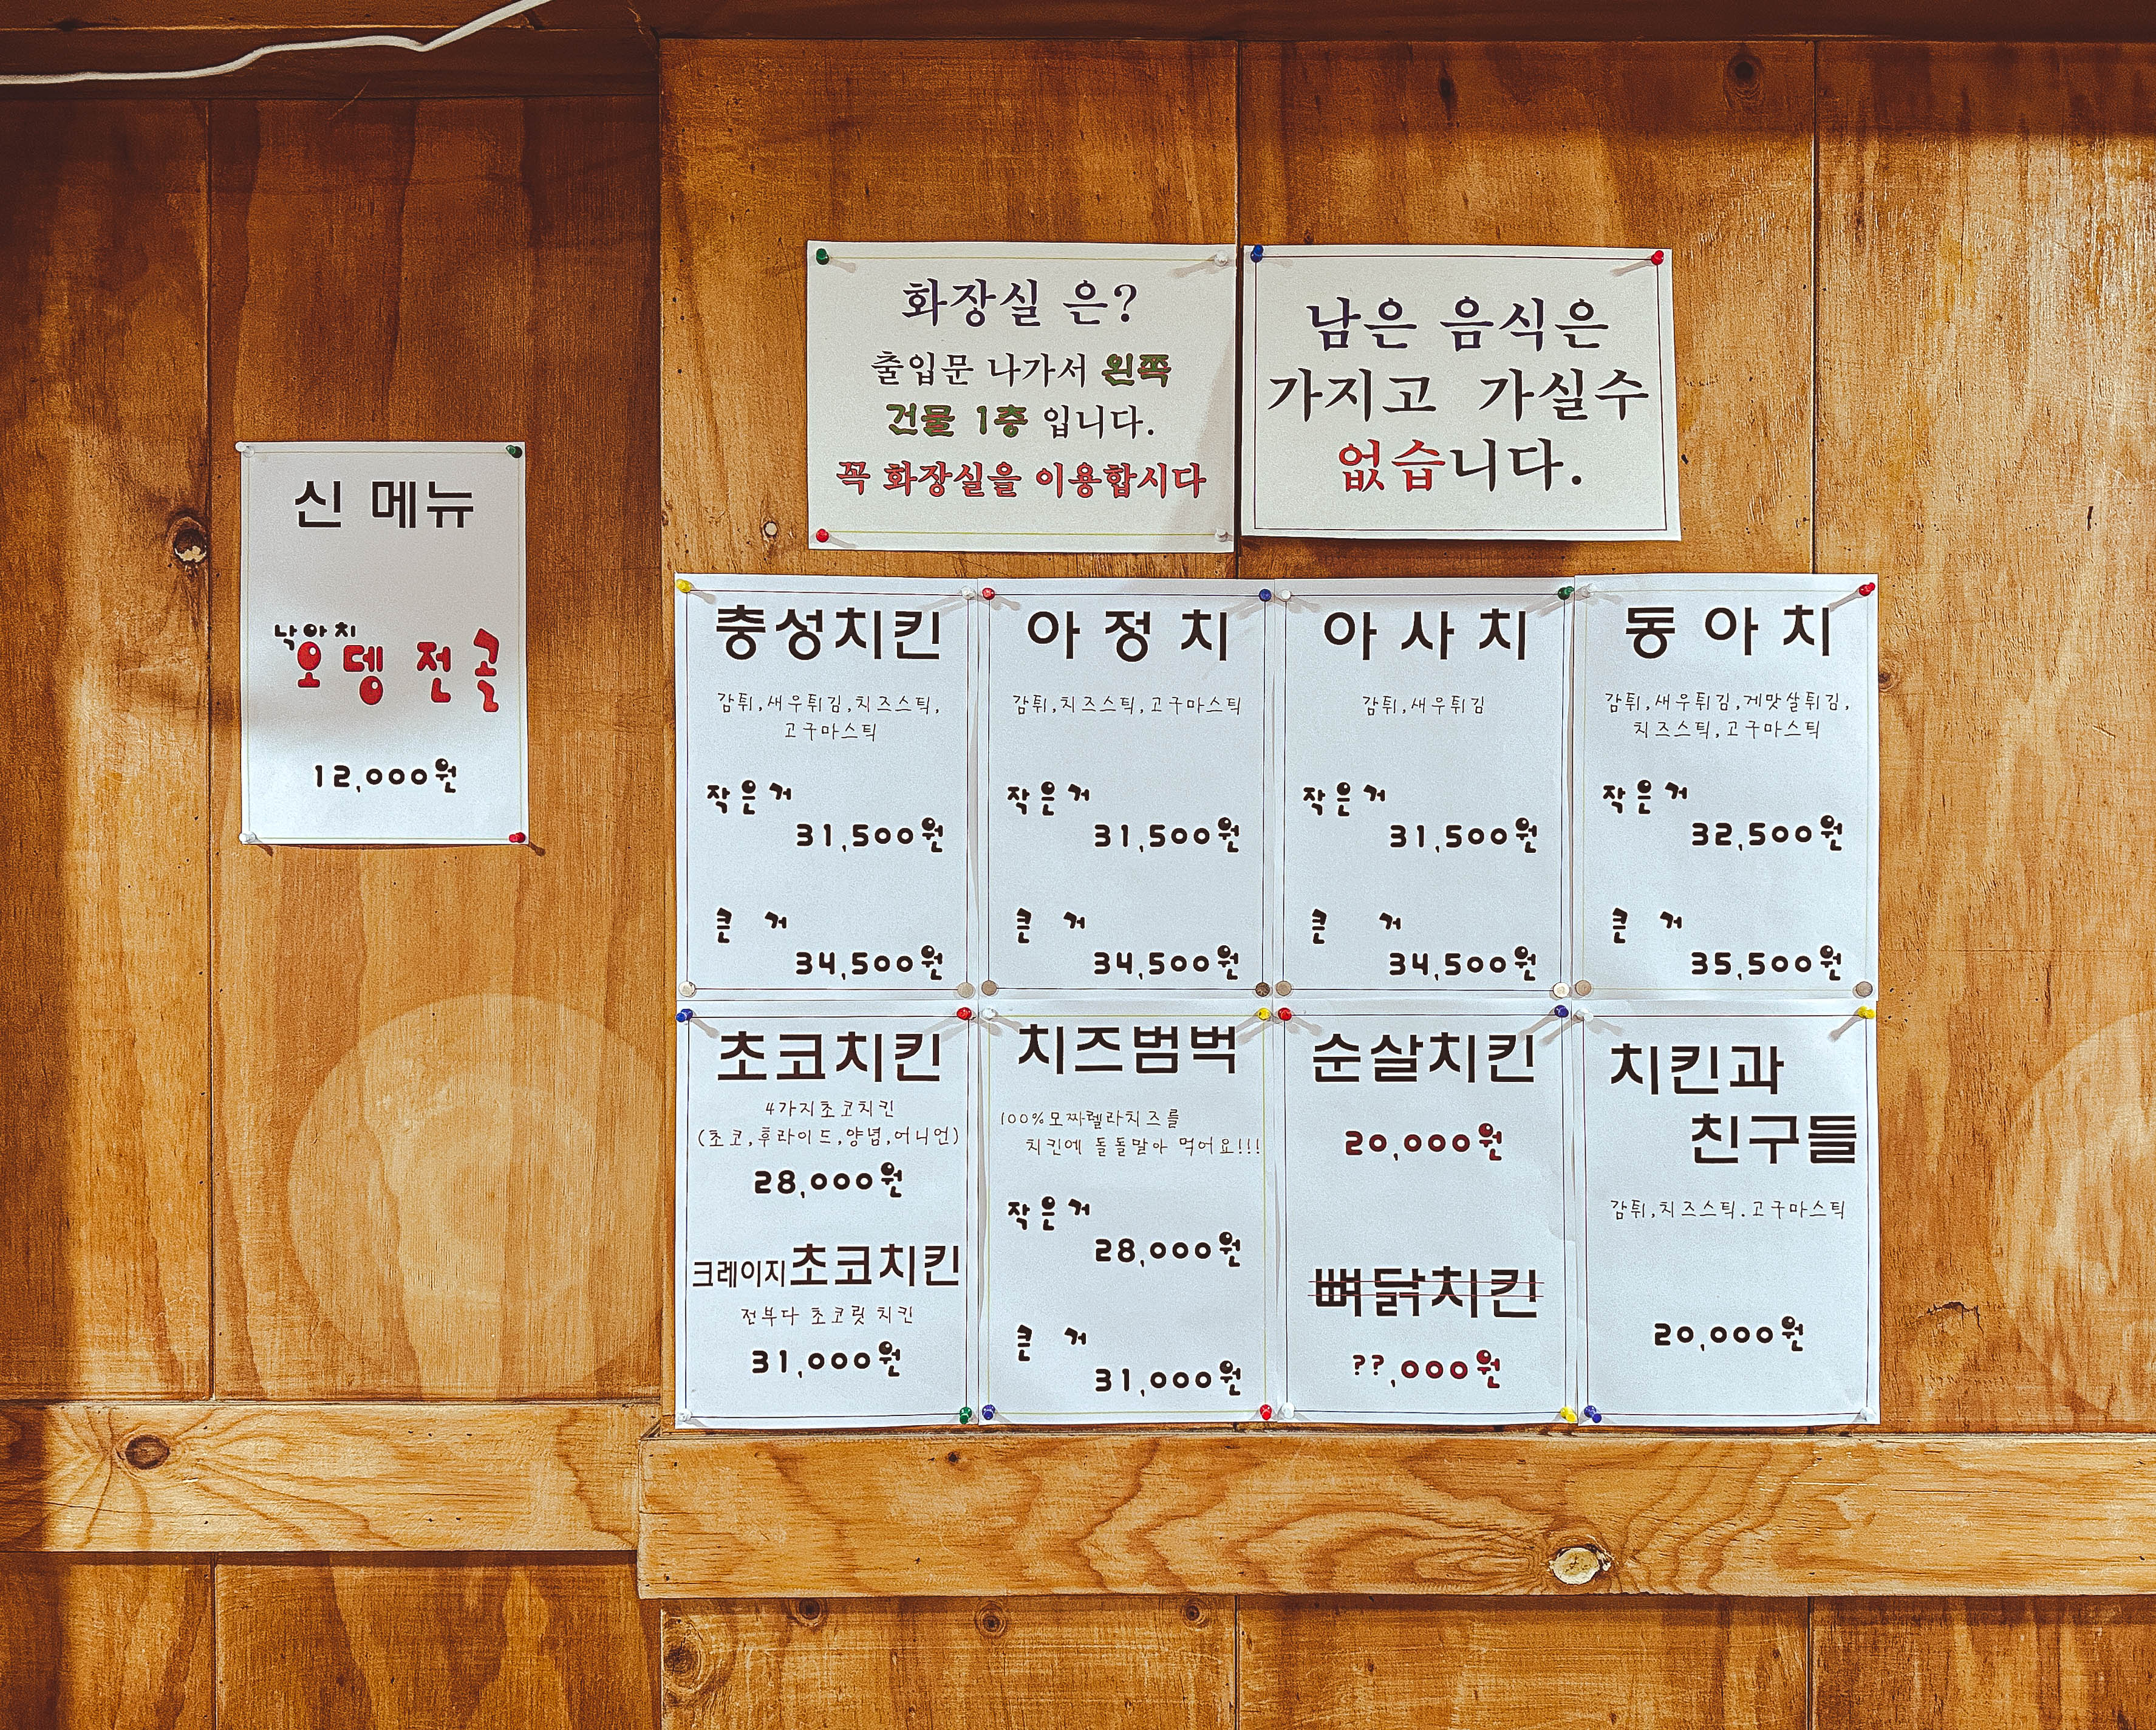 화장실 은?
출입문 나가서 왼쪽
건물 1층 입니다.
꼭 화장실을 이용합시다
남은 음식은
가지고 가실수
없습니다.
신 메뉴
낙아치
오뎅 전골
12,000원
충성치킨
감튀,새우튀김,치즈스틱,
고구마스틱
작은거
31,500원
큰 거
34,500원
아 정 치
감튀,치즈스틱,고구마스틱
작은거
31,500원
큰 거
34,500원
아 사 치
감튀,새우튀김
작은거
31,500원
큰 거
34,500원
동 아 치
감튀,새우튀김,게맛살튀김,
치즈스틱,고구마스틱
작은거
32,500원
큰 거
35,500원
초코치킨
4가지초코치킨
(초코,후라이드,양념,어니언)
28,000원
크레이지초코치킨
전부다 초코릿 치킨
31,000원
치즈범벅
100%모짜렐라치즈를
치킨에 돌돌말아 먹어요!!!
작은거
28,000원
큰 거
31,000원
순살치킨
20,000원
뼈닭치킨
??,000원
치킨과
친구들
감튀,치즈스틱.고구마스틱
20,000원